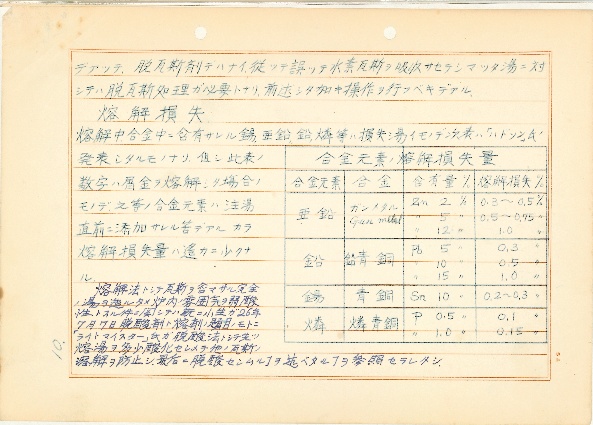 デアッテ、脱瓦斯剤デハナイ、従ッテ誤ッテ水素瓦斯ヲ吸収サセテシマッタ湯ニ対
シテハ脱瓦斯処理ガ必要トナリ、前述シタ如キ操作ヲ行フベキデアル。
熔解損失
熔解中合金中ニ含有サレル錫、亜鉛、鉛、燐等ノ損失ハ
発表シタルモノナリ、但シ此表ノ
数字ハ屑金ヲ熔解シタ場合ノ
モノデ之等ノ合金元素ハ注湯
直前ニ添加サレル筈デアルカラ
熔解損失量ハ遥カニ少クナ
ル。
合金元素ノ熔解損失量
合金元素 合金 含有量% 熔解損失%
亜鉛 ガンメタル Gun metal Zn 2% 0.3〜0.5%
〃 5〃 0.5〜0.75〃
〃 12〃 1.0〃
鉛 鉛青銅 Pb 5〃 0.3〃
〃 10〃 0.5〃
〃 15〃 1.0〃
錫 青銅 Sn 10〃 0.2〜0.3〃
燐 燐青銅 P 0.5〃 0.1〃
〃 1.0〃 0.15〃
熔解法トシテ瓦斯ヲ含マザル完全
ノ湯ヲ造ルタメ炉内ノ雰囲気ヲ弱酸
性トスル件ニ関シテハ既ニ小生ガ26年
7月7日脱酸剤ト熔剤ノ題目ノモトニ
ライトマイスター氏ガ脱酸法トシテ先ヅ
熔湯ヲ多少酸化セシメテ他ノ瓦斯ノ
溶解ヲ防止シ、最后ニ脱酸センムルヿヲ述ベタルヿヲ参照セラレタシ
10.